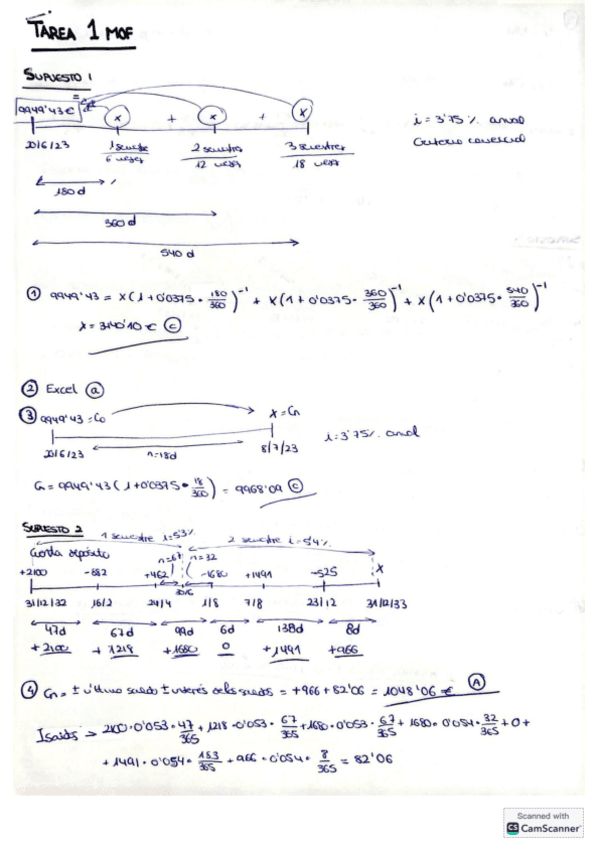 TAREA 1 MOF
SUPUESTO 1
9949'43€ x + x + x
i = 3'75% anual
Criterio comercial
20/6/23 1 semestre 2 semestres 3 semestres
6 meses 12 meses 18 meses
180 d
360 d
540 d
① 9949'43 = x(1+0'0375·180/360)^-1 + x(1+0'0375·360/360)^-1 + x(1+0'0375·540/360)^-1
x = 3440'10 € ⓒ
② Excel ⓐ
③ 9949'43 = Co x = Cn
i = 3'75% anual
20/6/23 n=18d 8/7/23
Cn = 9949'43 (1+0'0375·18/360) = 9968'09 ⓒ
SUPUESTO 2
1 semestre i=5'3% 2 semestre i=5'4%
depósito n=67 n=32
+2100 -882 +462 -1680 +1491 -525 x
30/6
31/12/32 16/2 24/4 1/8 7/8 23/12 31/12/33
47d 67d 99d 6d 138d 8d
+2100 +1218 +1680 0 +1491 +966
④ Cn = ± último saldo ± interés de los saldos = +966 + 82'06 = 1048'06 € Ⓐ
Isaldos → 2100·0'053·47/365 + 1218·0'053·67/365 + 1680·0'053·67/365 + 1680·0'054·32/365 + 0 +
+ 1491·0'054·/365 + 966·0'054·8/365 = 82'06
Scanned with
CS CamScanner